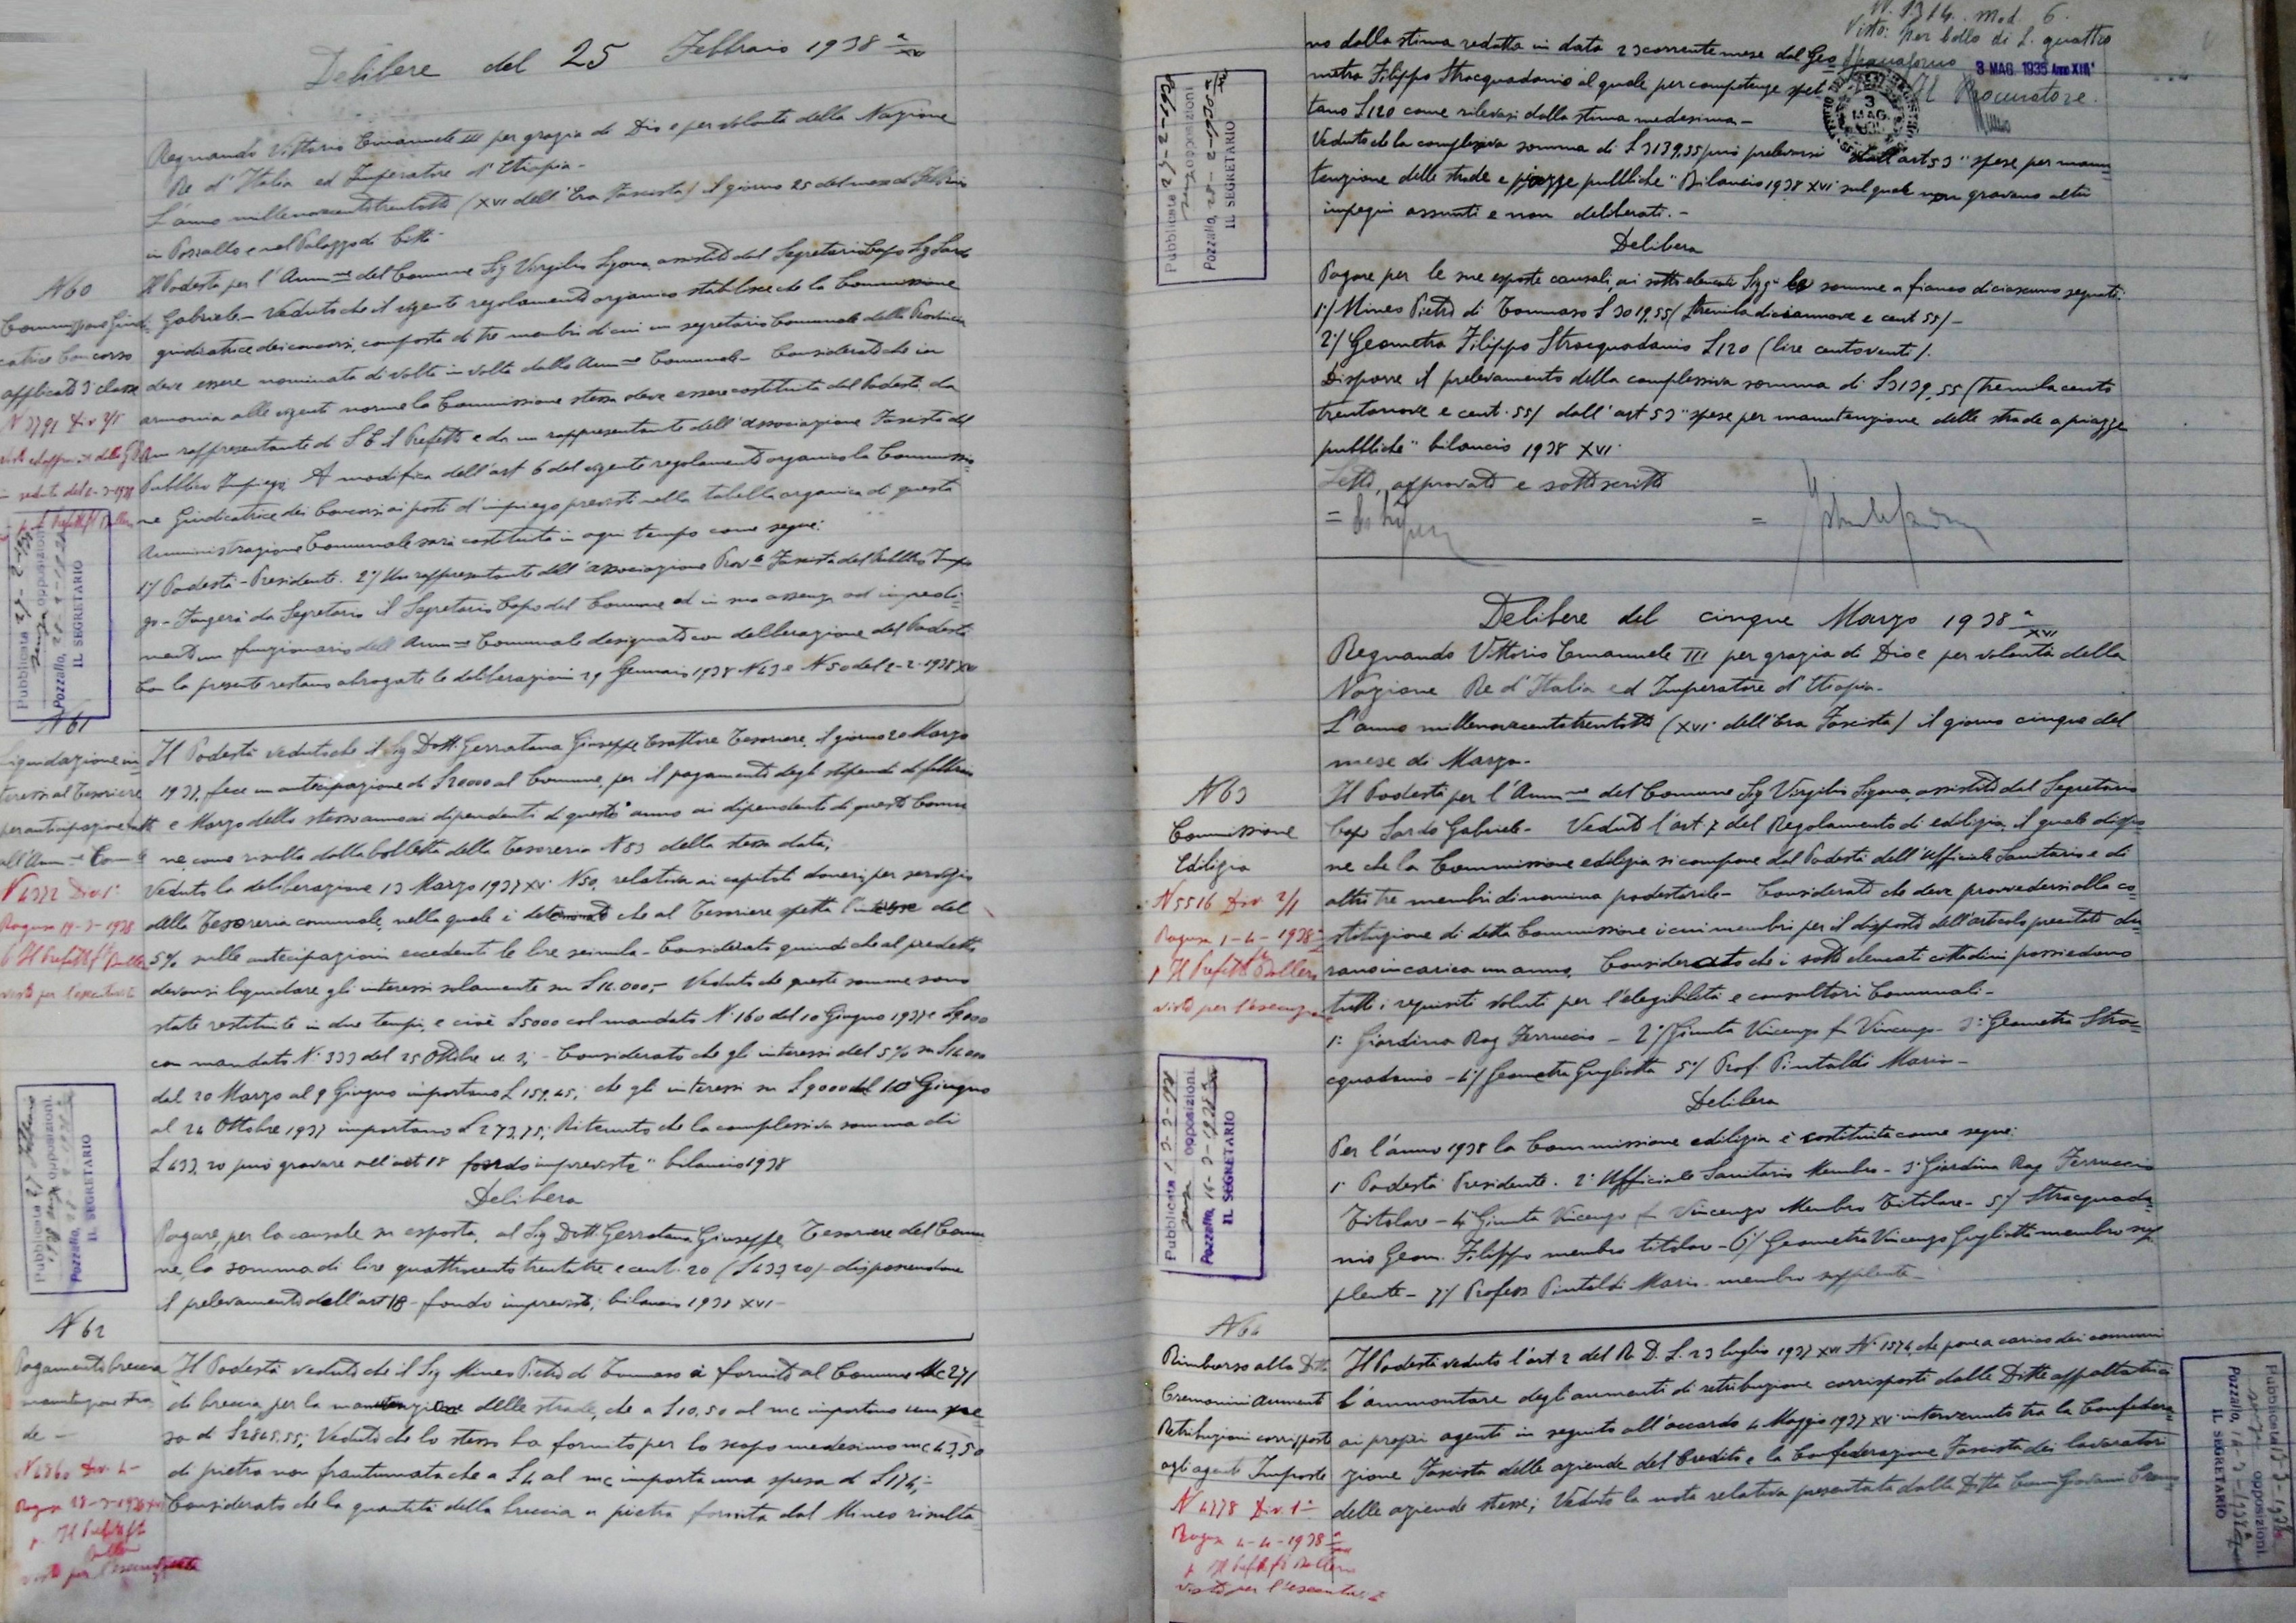 Delibere del 25 Febbraio 1938 XVI
Regnando Vittorio Emanuele III per grazia di Dio e per volontà della Nazione
Re d'Italia ed Imperatore d'Etiopia -
L'anno millenovecentotrentotto (XVI dell'Era Fascista) il giorno 25 del mese di Febbraio
in Pozzallo e nel Palazzo di Città
N 60
Commissione Giudi-
catrice Concorso
applicato 3ª classe
N 3791 Div 2/1
Il Podestà per l'Amm.ne del Comune Sig Virgilio Sigona, assistito dal Segretario Capo Sig Sardo
Gabriele - Veduto che il vigente regolamento organico stabilisce che la Commissione
giudicatrice dei concorsi, composta di tre membri di cui un segretario Comunale della Provincia
deve essere nominata di volta in volta dalla Amm.ne Comunale - Considerato che in
armonia alle vigenti norme la Commissione stessa deve essere costituita dal Podestà, da
un rappresentante di S. E. il Prefetto e da un rappresentante dell'associazione Fascista del
Pubblico Impiego; A modifica dell'art 6 del vigente regolamento organico la Commissio-
ne Giudicatrice dei Concorsi ai posti d'impiego previsti nella tabella organica di questa
Amministrazione Comunale sarà costituita in ogni tempo come segue:
1°/ Podestà - Presidente. 2°/ Un rappresentante dell'associazione Prov.le Fascista del Pubblico Impie
go - Fungerà da Segretario il Segretario Capo del Comune ed in sua assenza od impedi-
mento un funzionario dell'Amm.ne Comunale designato con deliberazione del Podestà
Con la presente restano abrogate le deliberazioni 29 Gennaio 1938 N 43 e N 50 del 2-2-1938 XVI
Pubblicata 27-2-1938
senza opposizioni
Pozzallo, 28-2-1938
IL SEGRETARIO
N 61
Liquidazione in-
teressi al Tesoriere
per anticipazione fatta
all'Amm.ne Com.le
N 4372 Div 1ª
Ragusa 19-3-1938
p Il Prefetto
visto per l'esecutività
Il Podestà veduto che il Sig Dott. Gerratana Giuseppe Esattore Tesoriere, il giorno 20 Marzo
1937, fece un'anticipazione di L 20000 al Comune, per il pagamento degli stipendi di febbraio
e Marzo dello stesso anno ai dipendenti di questo anno ai dipendenti di questo Comu
ne come risulta dalla bolletta della Tesoreria N 83 della stessa data;
Veduto la deliberazione 13 Marzo 1937 XV N 50, relativa ai capitoli doneri per servizio
della Tesoreria comunale, nella quale è determinato che al Tesoriere spetta l'interesse del
5% sulle anticipazioni eccedenti le lire seimila - Considerato quindi che al predetto
devonsi liquidare gli interessi solamente su L 14.000; - Veduto che queste somme sono
state restituite in due tempi, e cioè L 5000 col mandato N. 160 del 10 Giugno 1937 e L 9000
con mandato N. 333 del 25 Ottobre u. s; - Considerato che gli interessi del 5% su L 14.000
dal 20 Marzo al 9 Giugno importano L 159,45; che gli interessi su L 9000 dal 10 Giugno
al 24 Ottobre 1937 importano L 273,75; Ritenuto che la complessiva somma di
L 433,20 può gravare nell'art 18 fondo impreviste" bilancio 1938
Delibera
Pagare, per la causale su esposta, al Sig Dott. Gerratana Giuseppe Tesoriere del Comu-
ne, la somma di lire quattrocentotrentatre e cent. 20 (L 433,20) - disponendone
il prelevamento dall'art 18 - fondo impreviste; bilancio 1938 XVI -
Pubblicata 27 Febbraio
1938 senza opposizioni
Pozzallo, 28-2-1938
IL SEGRETARIO
N 62
Pagamento breccia
manutenzione stra
de -
N 4360 Div. 4-
Ragusa
p. Il Prefetto
visto per l'esecutività
Il Podestà veduto che il Sig Mineo Pietro di Tommaso à fornito al Comune Mc 271
di breccia per la manutenzione delle strade, che a L 10,50 al mc importano una spe-
sa di L 2845,55; Veduto che lo stesso ha fornito per lo scopo medesimo mc 43,50
di pietra non frantumata che a L 4 al mc importa una spesa di L 174; -
Considerato che la quantità della breccia e pietra fornita dal Mineo risulta-
N. 1314. mod. 6.
Visto: per bollo di L. quattro
3 MAG. 1935 Anno XIII°
Il Procuratore.
no dalla stima redatta in data 23 corrente mese dal Geo
metra Filippo Stracquadanio al quale per competenze spet
tano L 120 come rilevasi dalla stima medesima -
Veduto che la complessiva somma di L 3139,55 può prelevarsi dall'art 53 "spese per manu-
tenzione delle strade e piazze pubbliche" Bilancio 1938 XVI sul quale non gravano altri
impegni assunti e non deliberati. -
Delibera
Pagare per le sue esposte causali, ai sotto elencati Sigg.ri le somme a fianco di ciascuno segnate:
1°/ Mineo Pietro di Tommaso L 3019,55 (tremiladiciannove e cent 55) -
2°/ Geometra Filippo Stracquadanio L 120 (lire centoventi).
Disporre il prelevamento della complessiva somma di L 3139,55 (tremilacento
trentanove e cent. 55) dall'art 53 "spese per manutenzione delle strade e piazze
pubbliche" bilancio 1938 XVI
Letto, approvato e sottoscritto
Pubblicata 27-2-1938
senza opposizioni
Pozzallo, 28-2-1938
IL SEGRETARIO
Delibere del cinque Marzo 1938 XVI
Regnando Vittorio Emanuele III per grazia di Dio e per volontà della
Nazione Re d'Italia ed Imperatore d'Etiopia -
L'anno millenovecentotrentotto (XVI dell'Era Fascista) il giorno cinque del
mese di Marzo -
N 63
Commissione
Edilizia
N 5516 Div 2/1
Ragusa 1-4-1938
p Il Prefetto
visto per l'esecuzione
Il Podestà per l'Amm.ne del Comune Sig Virgilio Sigona, assistito dal Segretario
Capo Sardo Gabriele - Veduto l'art. 7 del Regolamento di edilizia, il quale dispo-
ne che la Commissione edilizia si compone del Podestà dell'Ufficiale Sanitario e di
altri tre membri di nomina podestarile - Considerato che deve provvedersi alla co-
stituzione di detta Commissione i cui membri per il disposto dell'articolo precitato du-
rano in carica un anno, Considerato che i sotto elencati cittadini possiedono
tutti i requisiti voluti per l'elegibilità e consultori Comunali -
1° Giardina Rag Ferruccio - 2°/ Giunta Vincenzo fu Vincenzo - 3° Geometra Stra-
cquadanio - 4°/ Geometra Gugliotta 5°/ Prof. Pintaldi Mario -
Delibera
Per l'anno 1938 la Commissione edilizia è costituita come segue:
1° Podestà Presidente. 2° Ufficiale Sanitario Membro - 3° Giardina Rag Ferruccio
Titolare - 4° Giunta Vincenzo fu Vincenzo Membro Titolare - 5°/ Stracquada-
nio Geom. Filippo membro titolare - 6°/ Geometra Vincenzo Gugliotta membro sup
plente - 7°/ Profess Pintaldi Mario - membro supplente -
Pubblicata 13-3-1938
senza opposizioni
Pozzallo, 14-3-1938
IL SEGRETARIO
N 64
Rimborso alla Ditta
Cremonini aumenti
Retribuzioni corrisposte
agli agenti Imposte
N 4778 Div. 1ª
Ragusa 4-4-1938
p Il Prefetto
visto per l'esecutività
Il Podestà veduto l'art 2 del R. D. L. 23 luglio 1937 XVI N° 1574, che pone a carico dei comuni
l'ammontare degli aumenti di retribuzione corrisposti dalle Ditte appaltatrici
ai propri agenti in seguito all'accordo 4 Maggio 1937 XV intervenuto tra la Confedera-
zione Fascista delle aziende del Credito e la Confederazione Fascista dei lavoratori
delle aziende stesse; Veduto la nota relativa presentata dalla Ditta
Pubblicata 13-3-1938
senza opposizioni
Pozzallo, 14-3-1938
IL SEGRETARIO